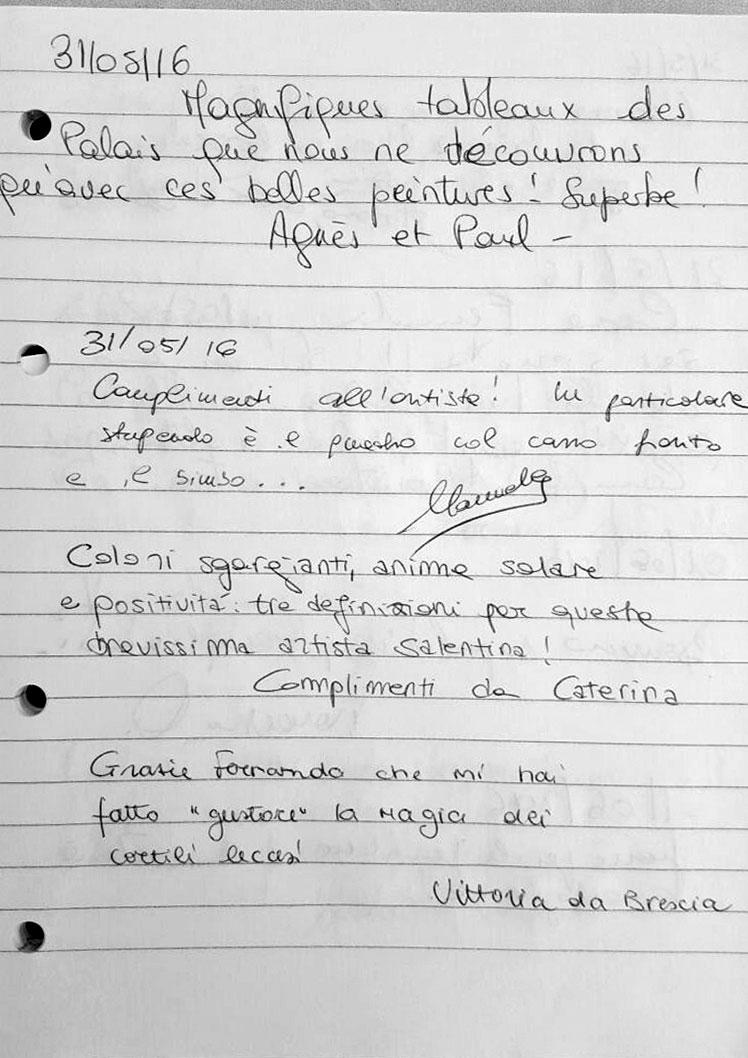 31/05/16
Magnifiques tableaux des
Palais que nous ne découvrons
qu'avec ces belles peintures! Superbe!
Agnès et Paul -
31/05/16
Complimenti all'artista! In particolare
stupendo è il quadro col carro fronto
e il
Coloni sgargianti, anima solare
e positività: tre definizioni per queste
bravissima artista salentina!
Complimenti da Caterina
Grazie Fernando che mi hai
fatto "gustare" la Magia dei
cortili leccesi
Vittoria da Brescia